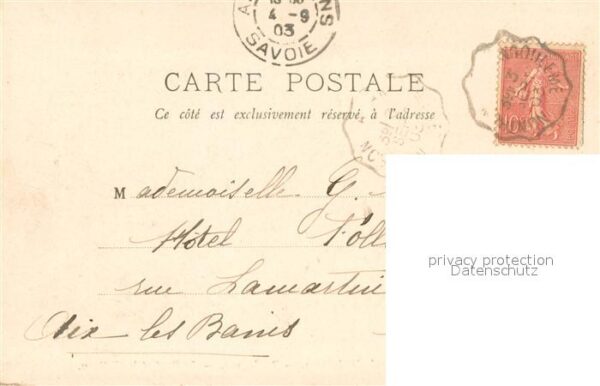 4 - 9
03
SAVOIE
CARTE POSTALE
Ce côté est exclusivement réservé à l'adresse
10
Mademoiselle G.
Hôtel
rue Lamartin
Aix les Bains
privacy protection
Datenschutz